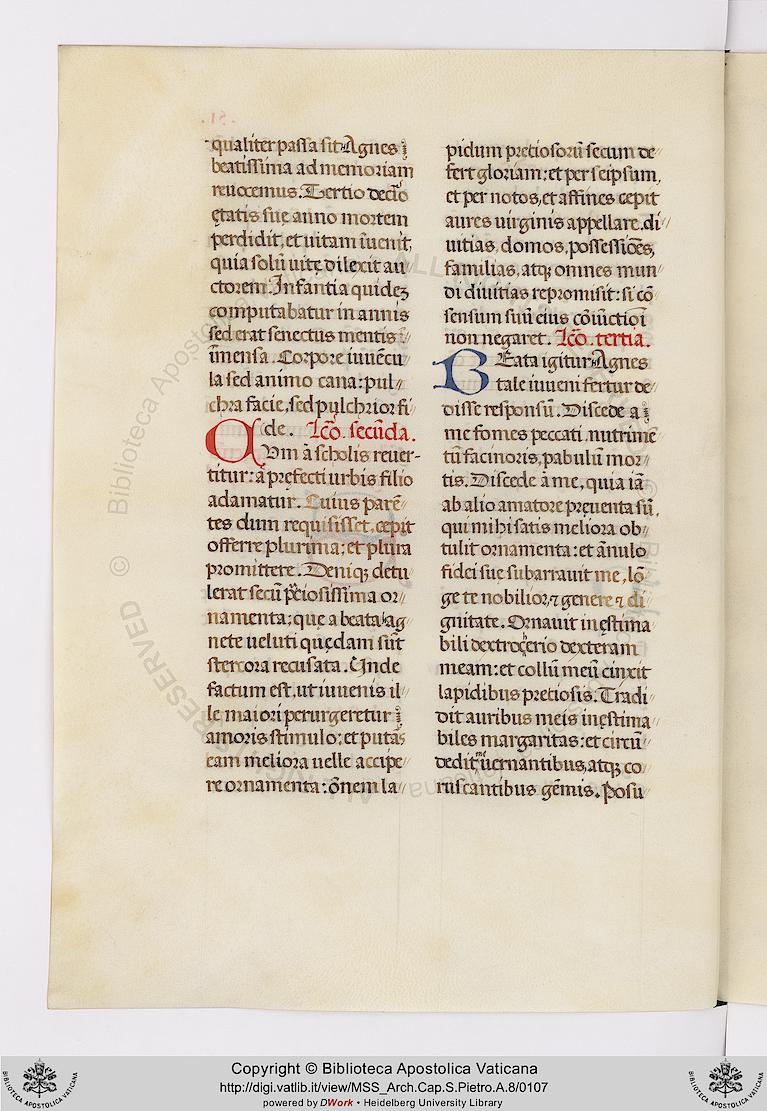 qualiter passa sit Agnes
beatissima ad memoriam
reuocemus. Tertio decĩo
ętatis suę anno mortem
perdidit, et uitam ĩuenit,
quia solũ uitę dilexit au
ctorem. Infantia quidez
computabatur in annis
sed erat senectus mentis
ĩmensa. Corpore iuuẽcu
la sed animo cana: pul
chra facie, sed pulchrior fi
de. Lc̃o. secũda.
Qvm à scholis reuer-
titur: à pręfecti urbis filio
adamatur. Cuius parẽ
tes dum requisisset, cępit
offerre plurima: et plura
promittere. Deniq; detu
lerat secũ p̃ciosissima or
namenta: quę a beata ag
nete ueluti quędam sũt
stercora recusata. Unde
factum est, ut iuuenis il
le maiori perurgeretur
amoris stimulo: et putãs
eam meliora uelle accipe
re ornamenta: õnem la
pidum pretiosorũ secum de
fert gloriam: et per seipsum,
et per notos, et affines cępit
aures uirginis appellare. di
uitias, domos, possessiões,
familias, atq; omnes mun
di diuitias repromisit: si cõ
sensum suũ eius cõiũctioĩ
non negaret. Lc̃o. tertia.
BEata igitur Agnes
tale iuueni fertur de
disse responsũ. Discede a
me fomes peccati, nutrimẽ
tũ facinoris, pabulũ mor
tis. Discede à me, quia iã
ab alio amatore pręuenta sũ,
qui mihi satis meliora ob
tulit ornamenta: et ãnulo
fidei suę subarrauit me, lõ
ge te nobilior, ⁊ genere ⁊ di
gnitate. Ornauit inęstima
bili dextroc̃erio dexteram
meam: et collũ meũ cinxit
lapidibus pretiosis. Tradi
dit auribus meis inęstima
biles margaritas: et circũ
dedit m̃ uernantibus, atq; co
ruscantibus gẽmis. Posu
Copyright © Biblioteca Apostolica Vaticana
http://digi.vatlib.it/view/MSS_Arch.Cap.S.Pietro.A.8/0107
powered by DWork • Heidelberg University Library